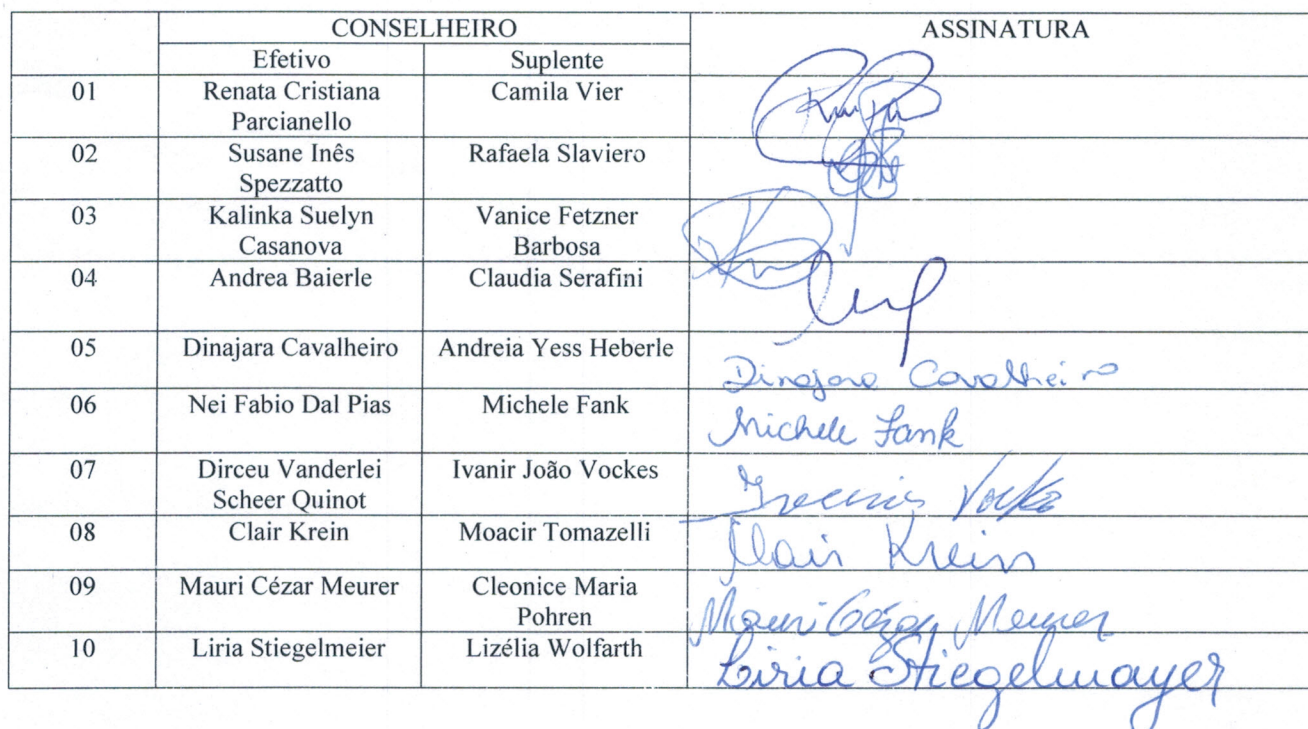 CONSELHEIRO ASSINATURA
Efetivo Suplente
01 Renata Cristiana Camila Vier
Parcianello
02 Susane Inês Rafaela Slaviero
Spezzatto
03 Kalinka Suelyn Vanice Fetzner
Casanova Barbosa
04 Andrea Baierle Claudia Serafini
05 Dinajara Cavalheiro Andreia Yess Heberle
Dinajara Cavalheiro
06 Nei Fabio Dal Pias Michele Fank
Michele Fank
07 Dirceu Vanderlei Ivanir João Vockes
Scheer Quinot
08 Clair Krein Moacir Tomazelli
Clair Krein
09 Mauri Cézar Meurer Cleonice Maria
Pohren
Mauri Cézar Meurer
10 Liria Stiegelmeier Lizélia Wolfarth
Liria Stiegelmayer